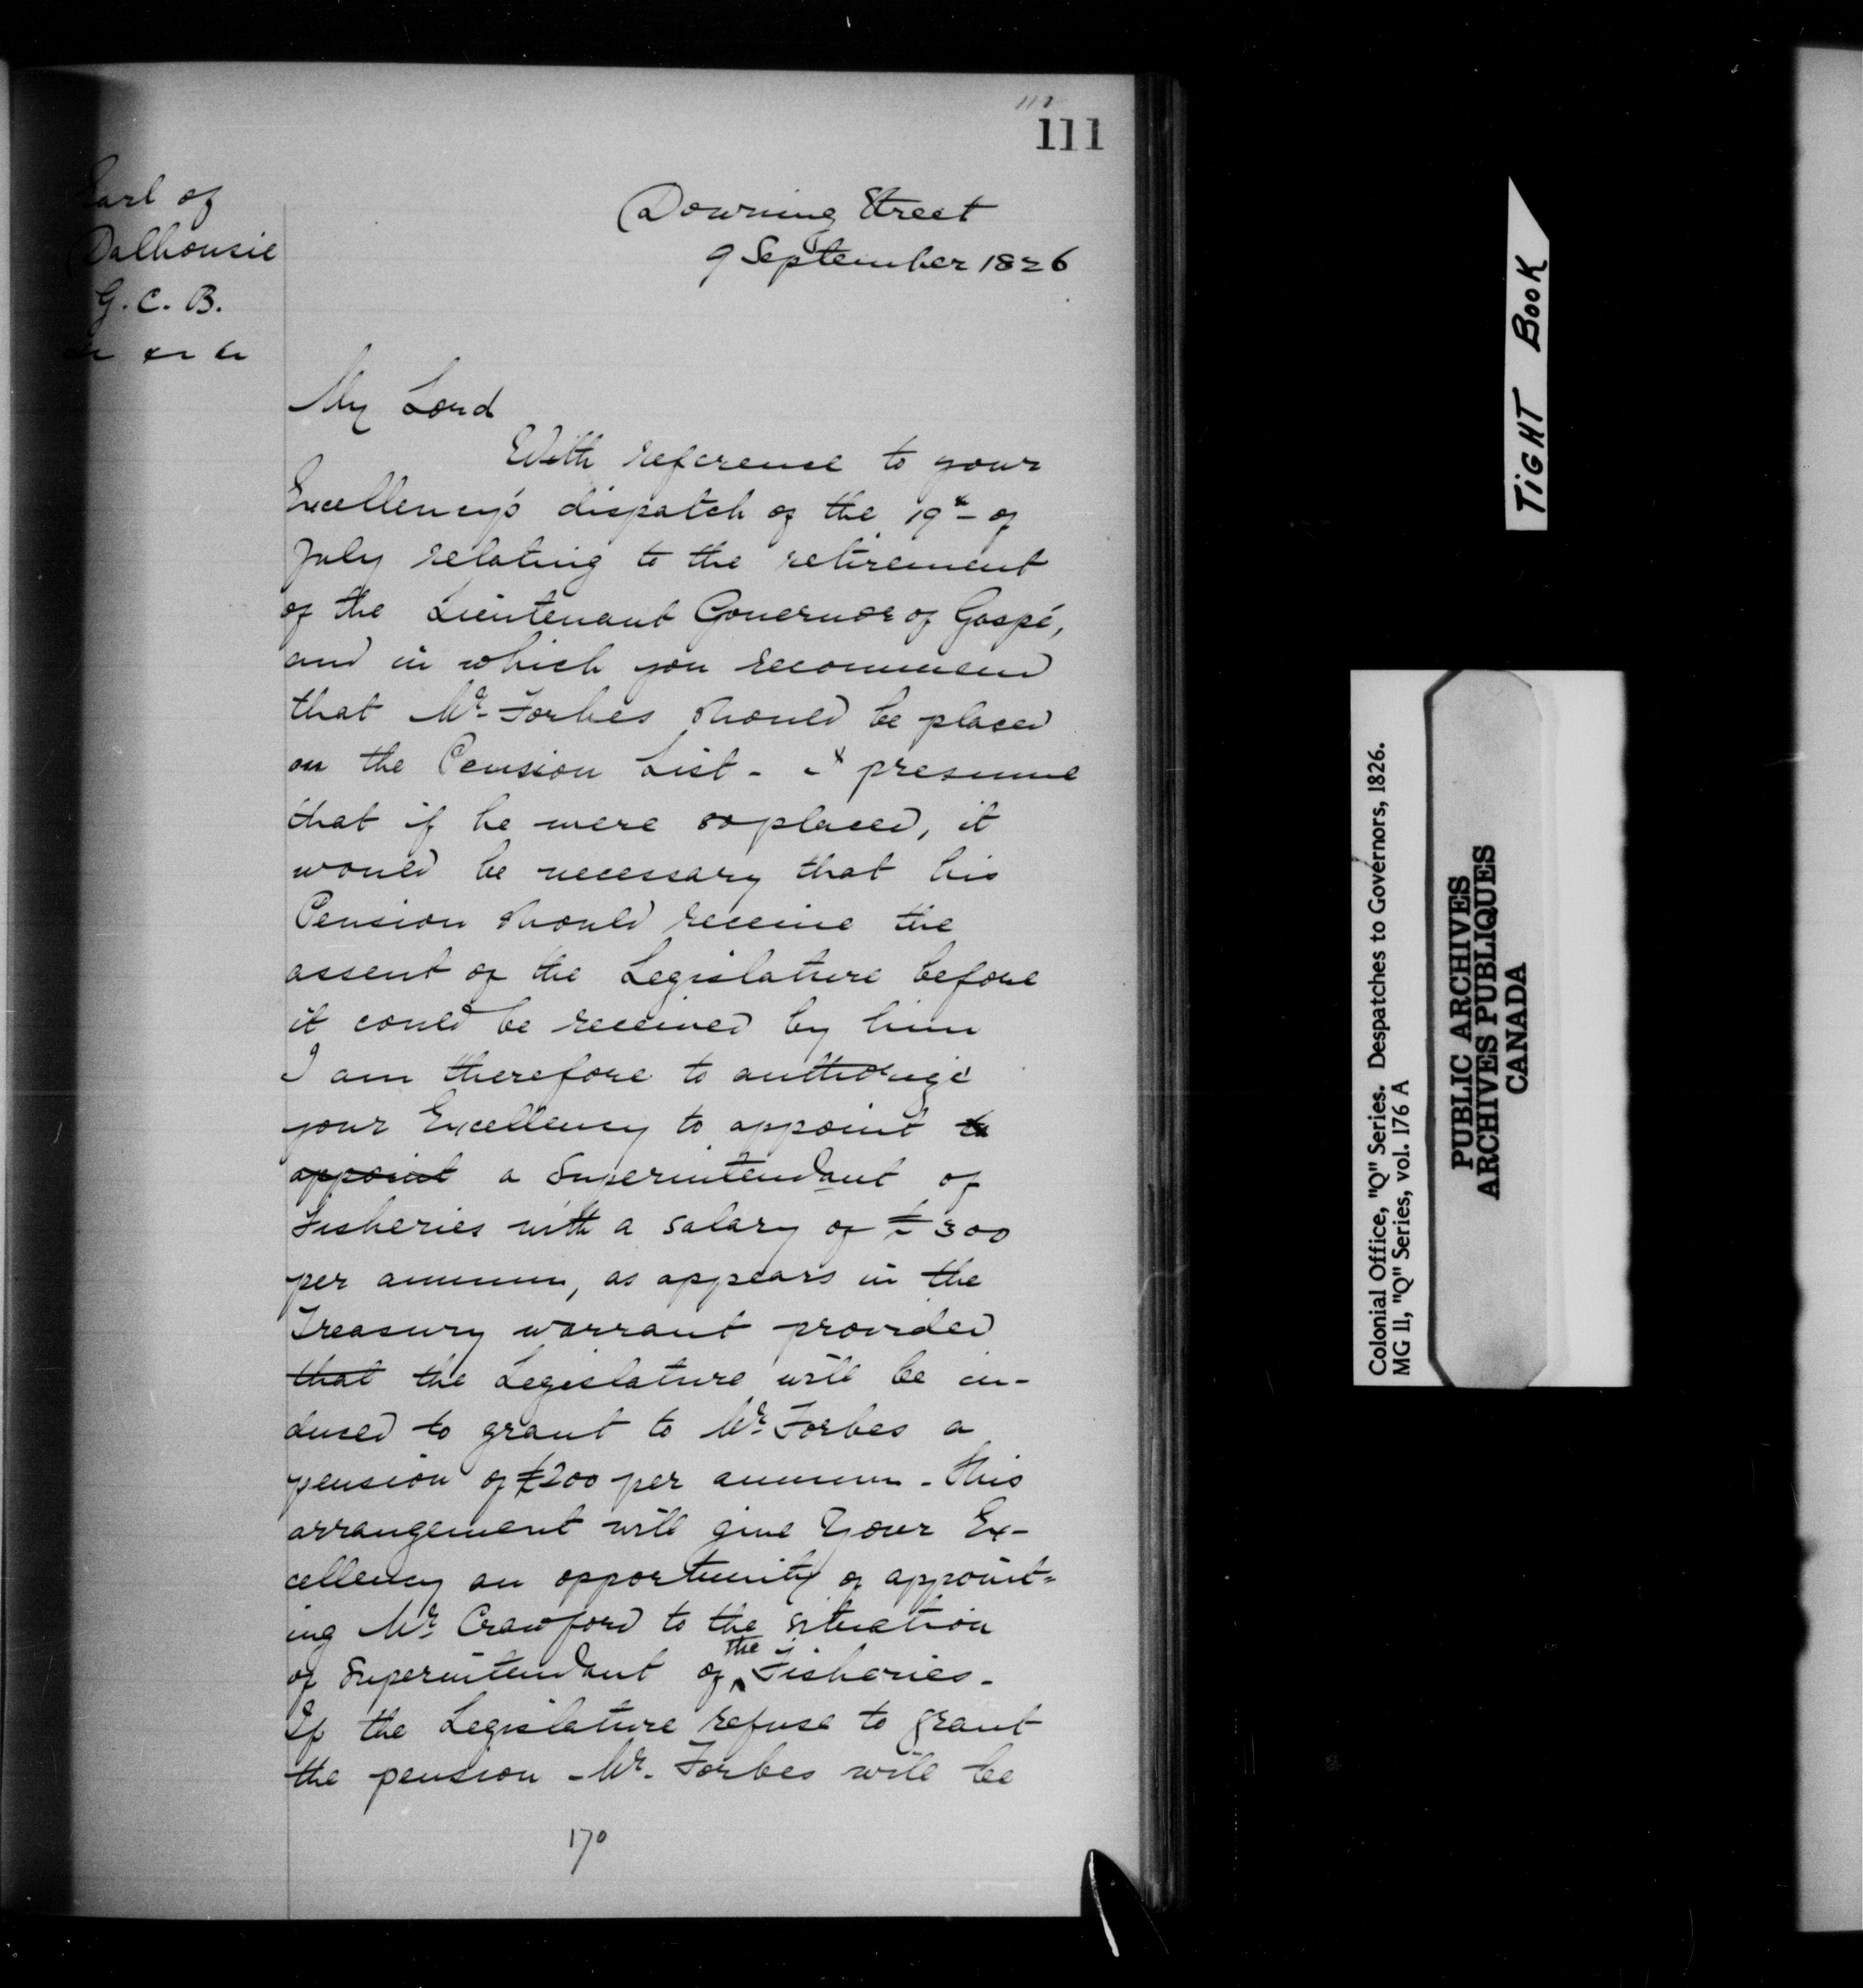 111
Earl of
Dalhousie
G. C. B.
Downing Street
9 September 1826
My Lord
With reference to your
Excellency's dispatch of the 19th of
July relating to the retirement
of the Lieutenant Governor of Gaspé,
and in which you recommend
that Mr. Forbes should be placed
on the Pension List - I presume
that if he were so placed, it
would be necessary that his
Pension should receive the
assent of the Legislature before
it could be received by him
I am therefore to authorize
your Excellency to appoint to
appoint a Superintendant of
Fisheries with a salary of £300
per annum, as appears in the
Treasury warrant provided
that the Legislature will be in-
duced to grant to Mr. Forbes a
pension of £200 per annum - this
arrangement will give Your Ex-
cellency an opportunity of appoint=
ing Mr. Crawford to the situation
of Superintendant of the Fisheries.
If the Legislature refuse to grant
the pension - Mr. Forbes will be
170
TIGHT BOOK
Colonial Office, "Q" Series. Despatches to Governors, 1826.
MG 11, "Q" Series, vol. 176 A
PUBLIC ARCHIVES
ARCHIVES PUBLIQUES
CANADA